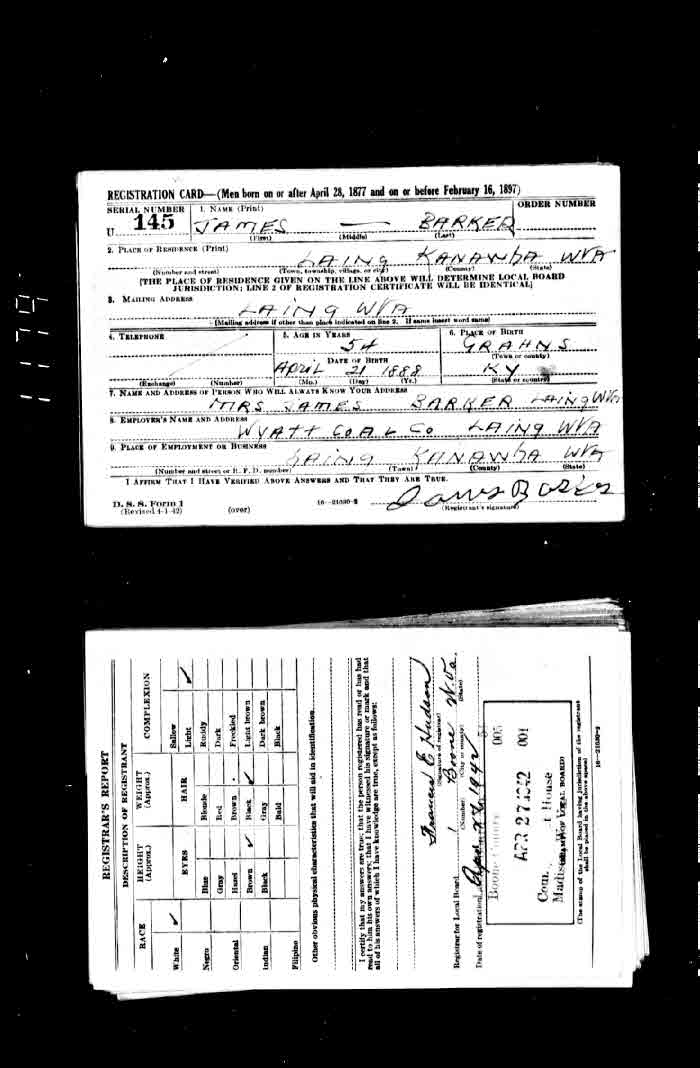 REGISTRATION CARD—(Men born on or after April 28, 1877 and on or before February 16, 1897)
SERIAL NUMBER 1. NAME (Print) ORDER NUMBER
U 145 JAMES — BARKER
(First) (Middle) (Last)
2. PLACE OF RESIDENCE (Print)
LAING KANAWHA WVA
(Number and street) (Town, township, village, or city) (County) (State)
[THE PLACE OF RESIDENCE GIVEN ON THE LINE ABOVE WILL DETERMINE LOCAL BOARD
JURISDICTION; LINE 2 OF REGISTRATION CERTIFICATE WILL BE IDENTICAL]
3. MAILING ADDRESS
LAING WVA
[Mailing address if other than place indicated on line 2. If same insert word same]
4. TELEPHONE 5. AGE IN YEARS 6. PLACE OF BIRTH
54 GRAHNS
DATE OF BIRTH (Town or county)
April 21 1888 KY
(Exchange) (Number) (Mo.) (Day) (Yr.) (State or country)
7. NAME AND ADDRESS OF PERSON WHO WILL ALWAYS KNOW YOUR ADDRESS
MRS JAMES BARKER LAING WVA
8. EMPLOYER'S NAME AND ADDRESS
WYATT COAL CO LAING WVA
9. PLACE OF EMPLOYMENT OR BUSINESS
LAING KANAWHA WVA
(Number and street or R. F. D. number) (Town) (County) (State)
I AFFIRM THAT I HAVE VERIFIED ABOVE ANSWERS AND THAT THEY ARE TRUE.
James Barker
D. S. S. Form 1
(Revised 4-1-42) (over) 16—21630-2 (Registrant's signature)
1179
REGISTRAR'S REPORT
DESCRIPTION OF REGISTRANT
RACE HEIGHT (Approx.) WEIGHT (Approx.) COMPLEXION
White ✓ EYES HAIR Sallow
Light ✓
Negro Blue Blonde Ruddy
Gray Red Dark
Oriental Hazel Brown Freckled
Brown ✓ Black ✓ Light brown
Indian Black Gray Dark brown
Filipino Bald Black
Other obvious physical characteristics that will aid in identification
I certify that my answers are true; that the person registered has read or has had
read to him his own answers; that I have witnessed his signature or mark and that
all of his answers of which I have knowledge are true, except as follows:
Frances E Hudson
(Signature of registrar)
Registrar for Local Board 1 Boone W. Va.
(Number) (City or county) (State)
Date of registration
1942
Boone County 005
APR 27 1942 001
House
(STAMP OF LOCAL BOARD)
(The stamp of the Local Board having jurisdiction of the registrant
shall be placed in the above space)
16—21630-2